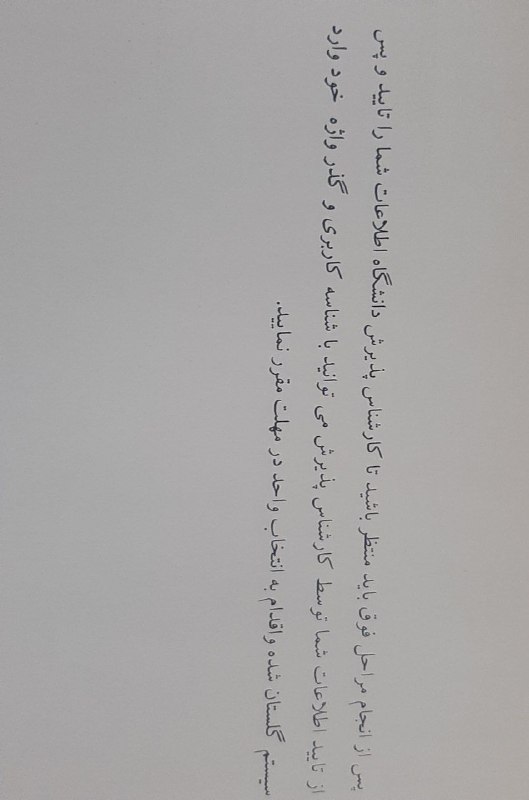 پس از انجام مراحل فوق باید منتظر باشید تا کارشناس پذیرش دانشگاه اطلاعات شما را تایید و پس
از تایید اطلاعات شما توسط کارشناس پذیرش می توانید با شناسه کاربری و گذر واژه خود وارد
سیستم گلستان شده و اقدام به انتخاب واحد در مهلت مقرر نمایید.